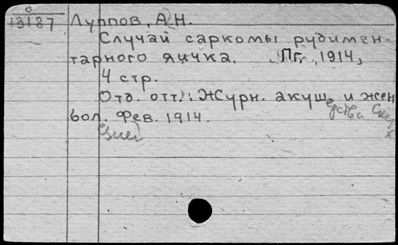 13187 Луппов, А.Н.
Случай саркомы рудимен-
тарного яичка. Пг., 1914,
4 стр.
Отд. отт.: Журн. акуш. и жен
бол. Фев. 1914.